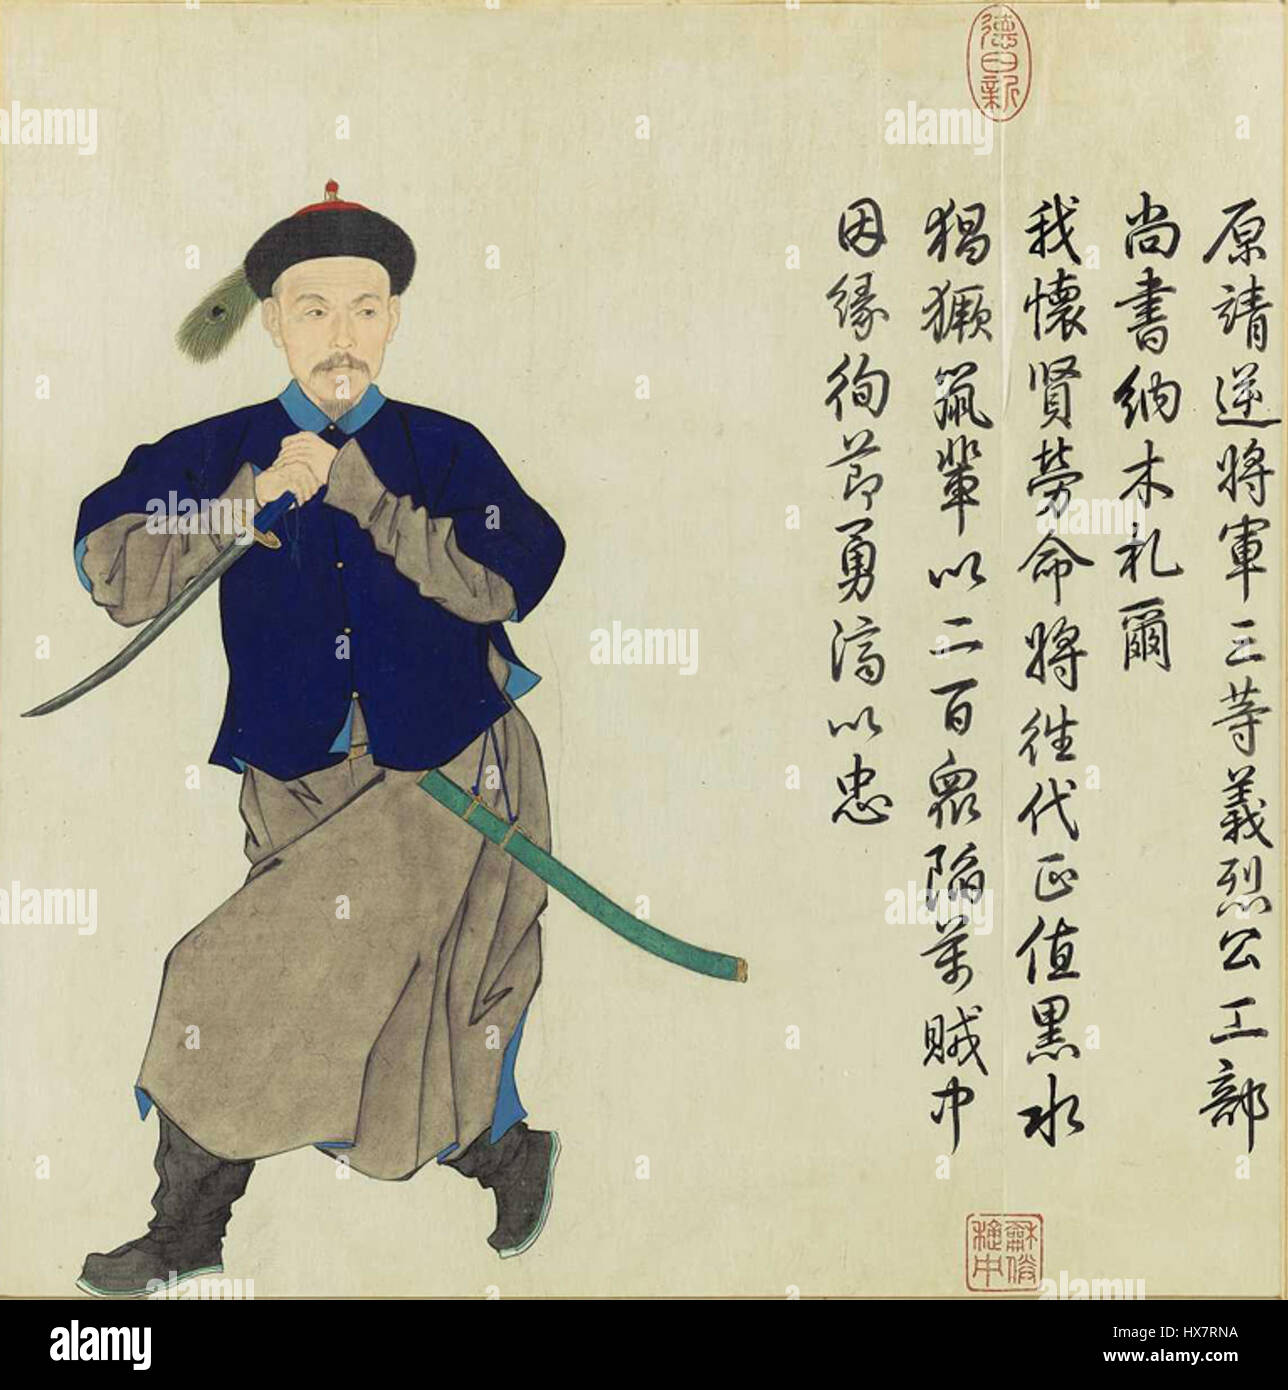 德日新
原靖逆將軍三等義烈公工部
尚書納木札爾
我懷賢勞命將往代正值黑水
猖獗鼠輩以二百眾陷萬賊中
因緣徇節勇濟以忠
alamy
alamy
Image ID: HX7RNA
www.alamy.com